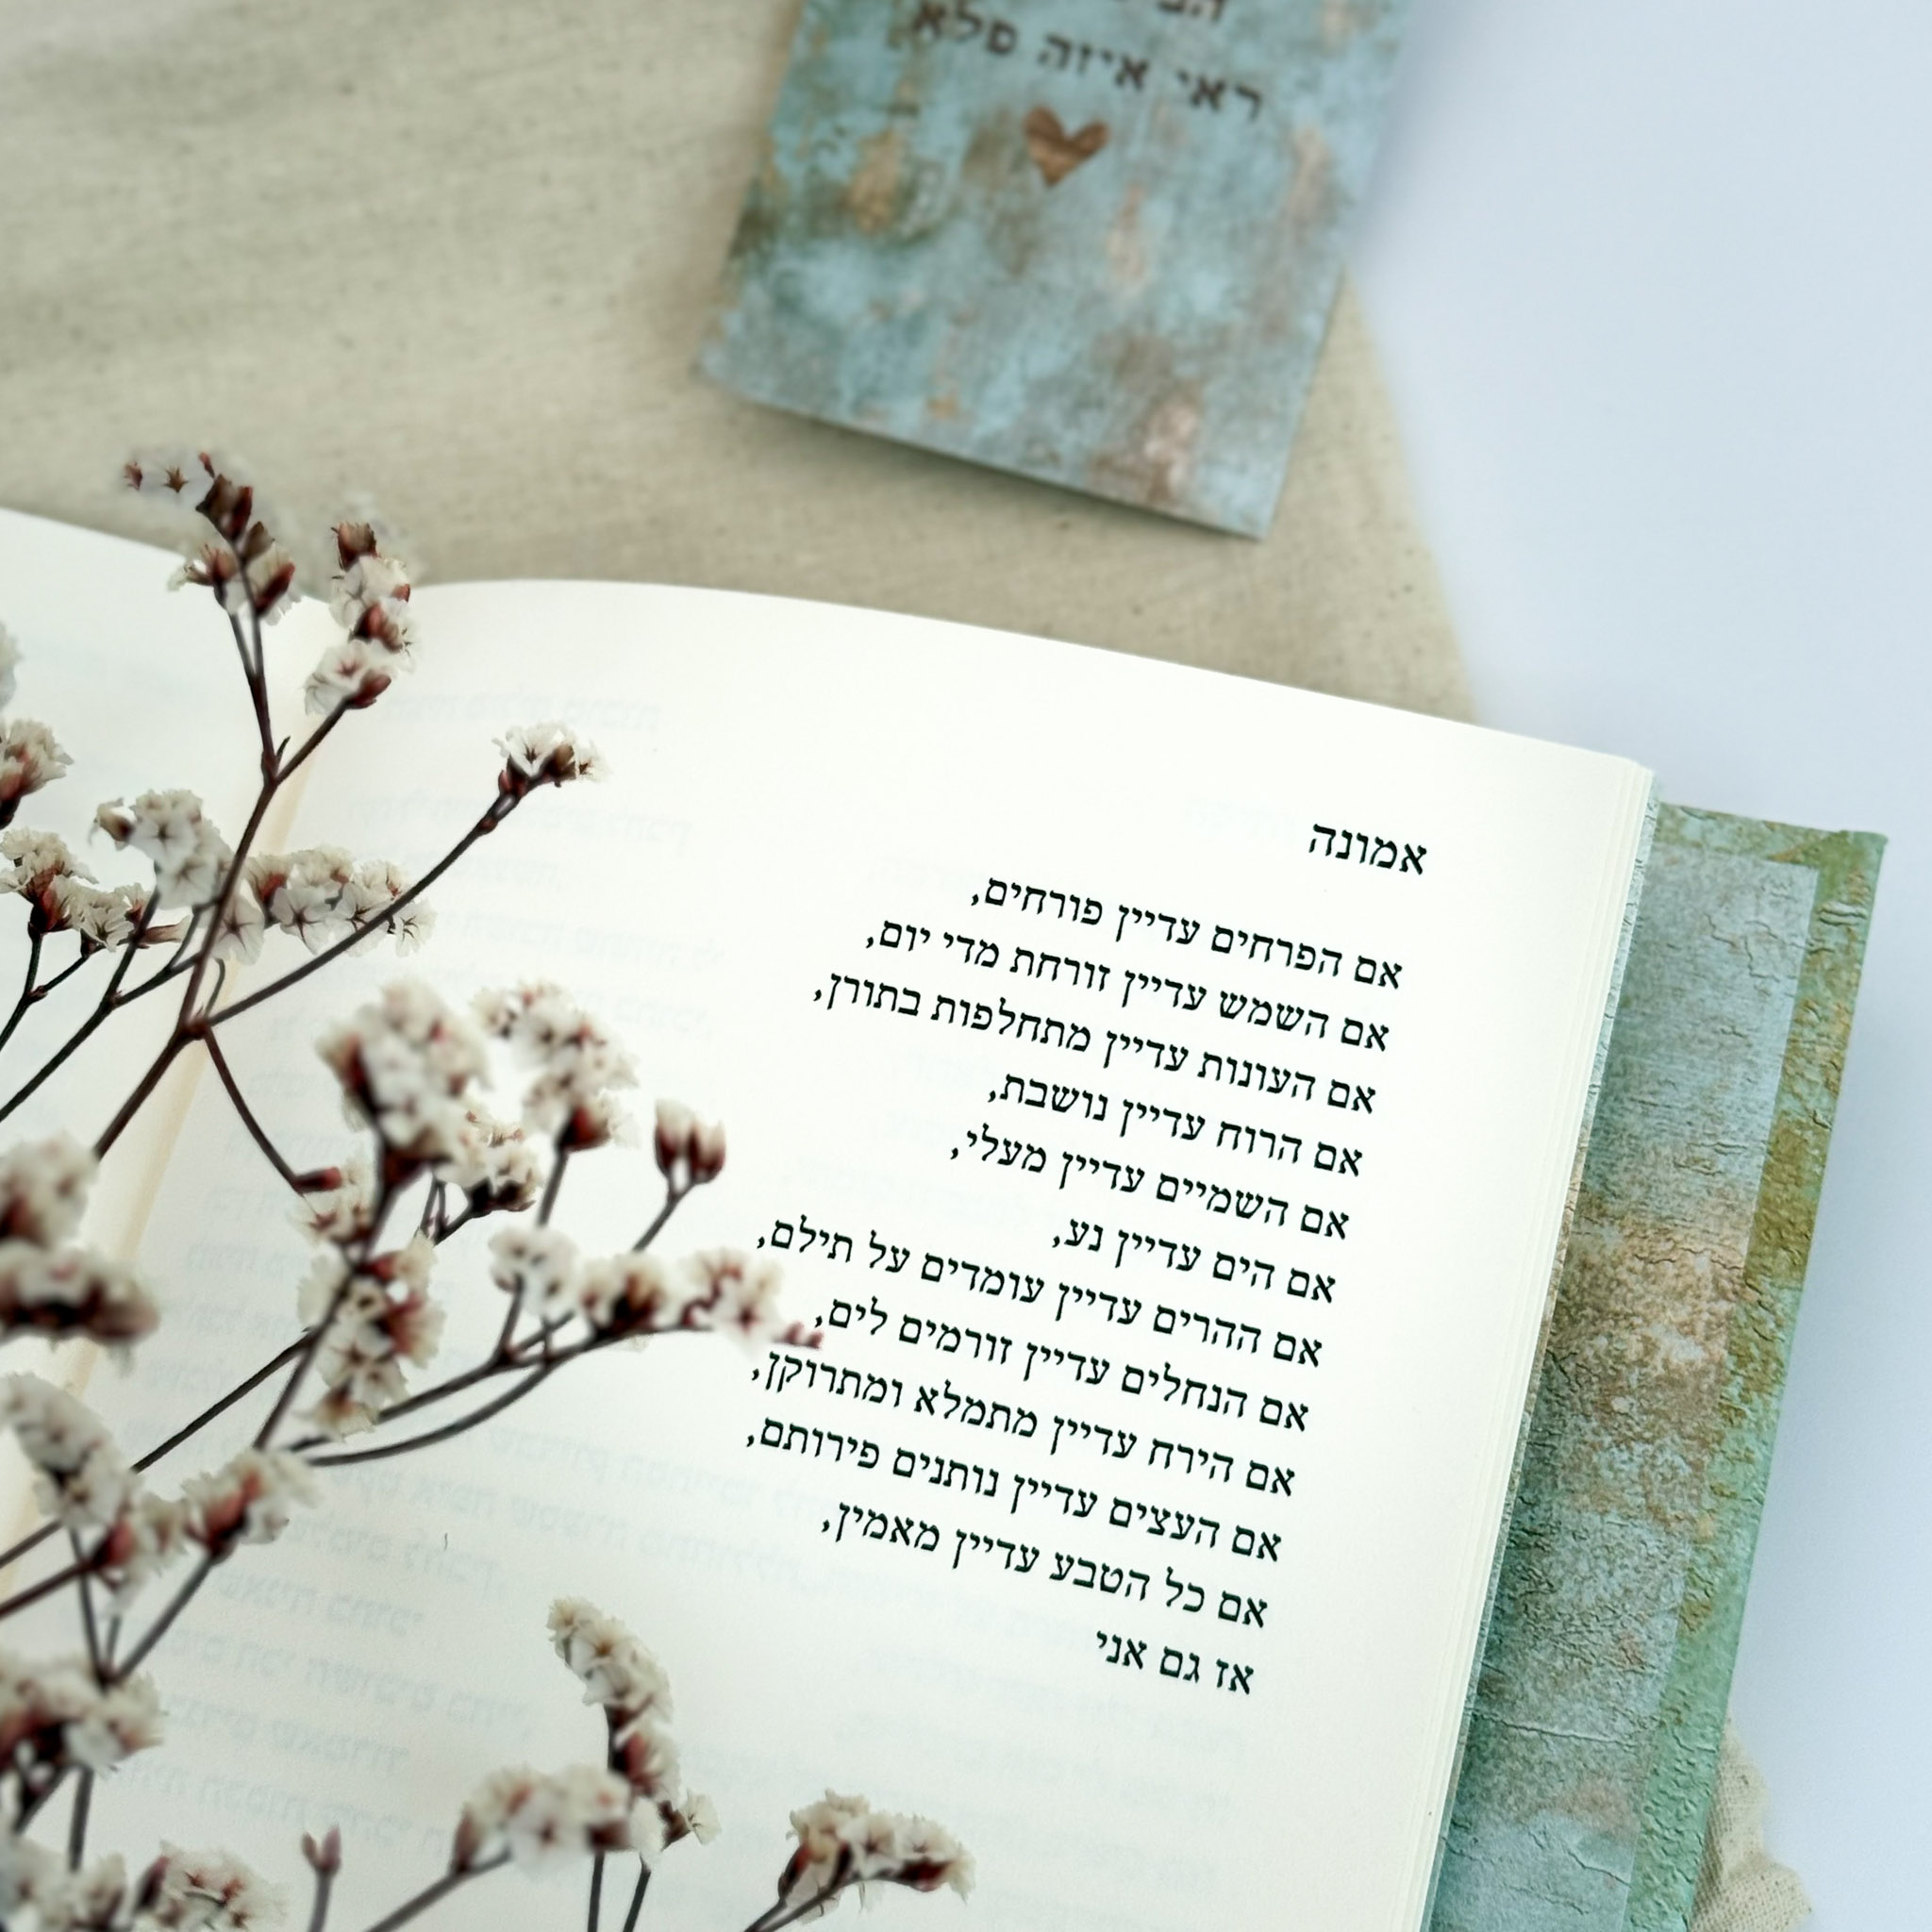 ראי איזה פלא
אמונה
אם הפרחים עדיין פורחים,
אם השמש עדיין זורחת מדי יום,
אם העונות עדיין מתחלפות בתורן,
אם הרוח עדיין נושבת,
אם השמיים עדיין מעלי,
אם הים עדיין נע,
אם ההרים עדיין עומדים על תילם,
אם הנחלים עדיין זורמים לים,
אם הירח עדיין מתמלא ומתרוקן,
אם העצים עדיין נותנים פירותם,
אם כל הטבע עדיין מאמין,
אז גם אני